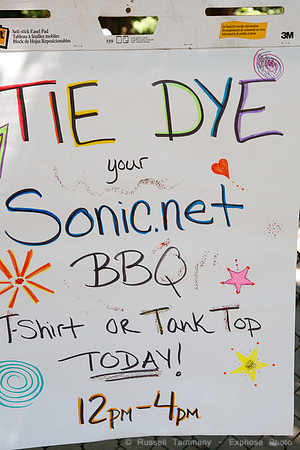 Self-stick Easel Pad
Tableau à feuilles mobiles
Block de Hojas Reposicionables
559
3M
TIE DYE
your
Sonic.net
BBQ
T-Shirt OR Tank Top
TODAY!
12pm-4pm
© Russell Tammany - Exphose Photo